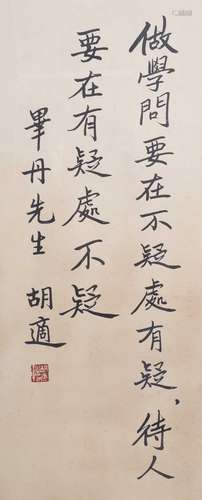 做學問要在不疑處有疑，待人
要在有疑處不疑
畢丹先生 胡適